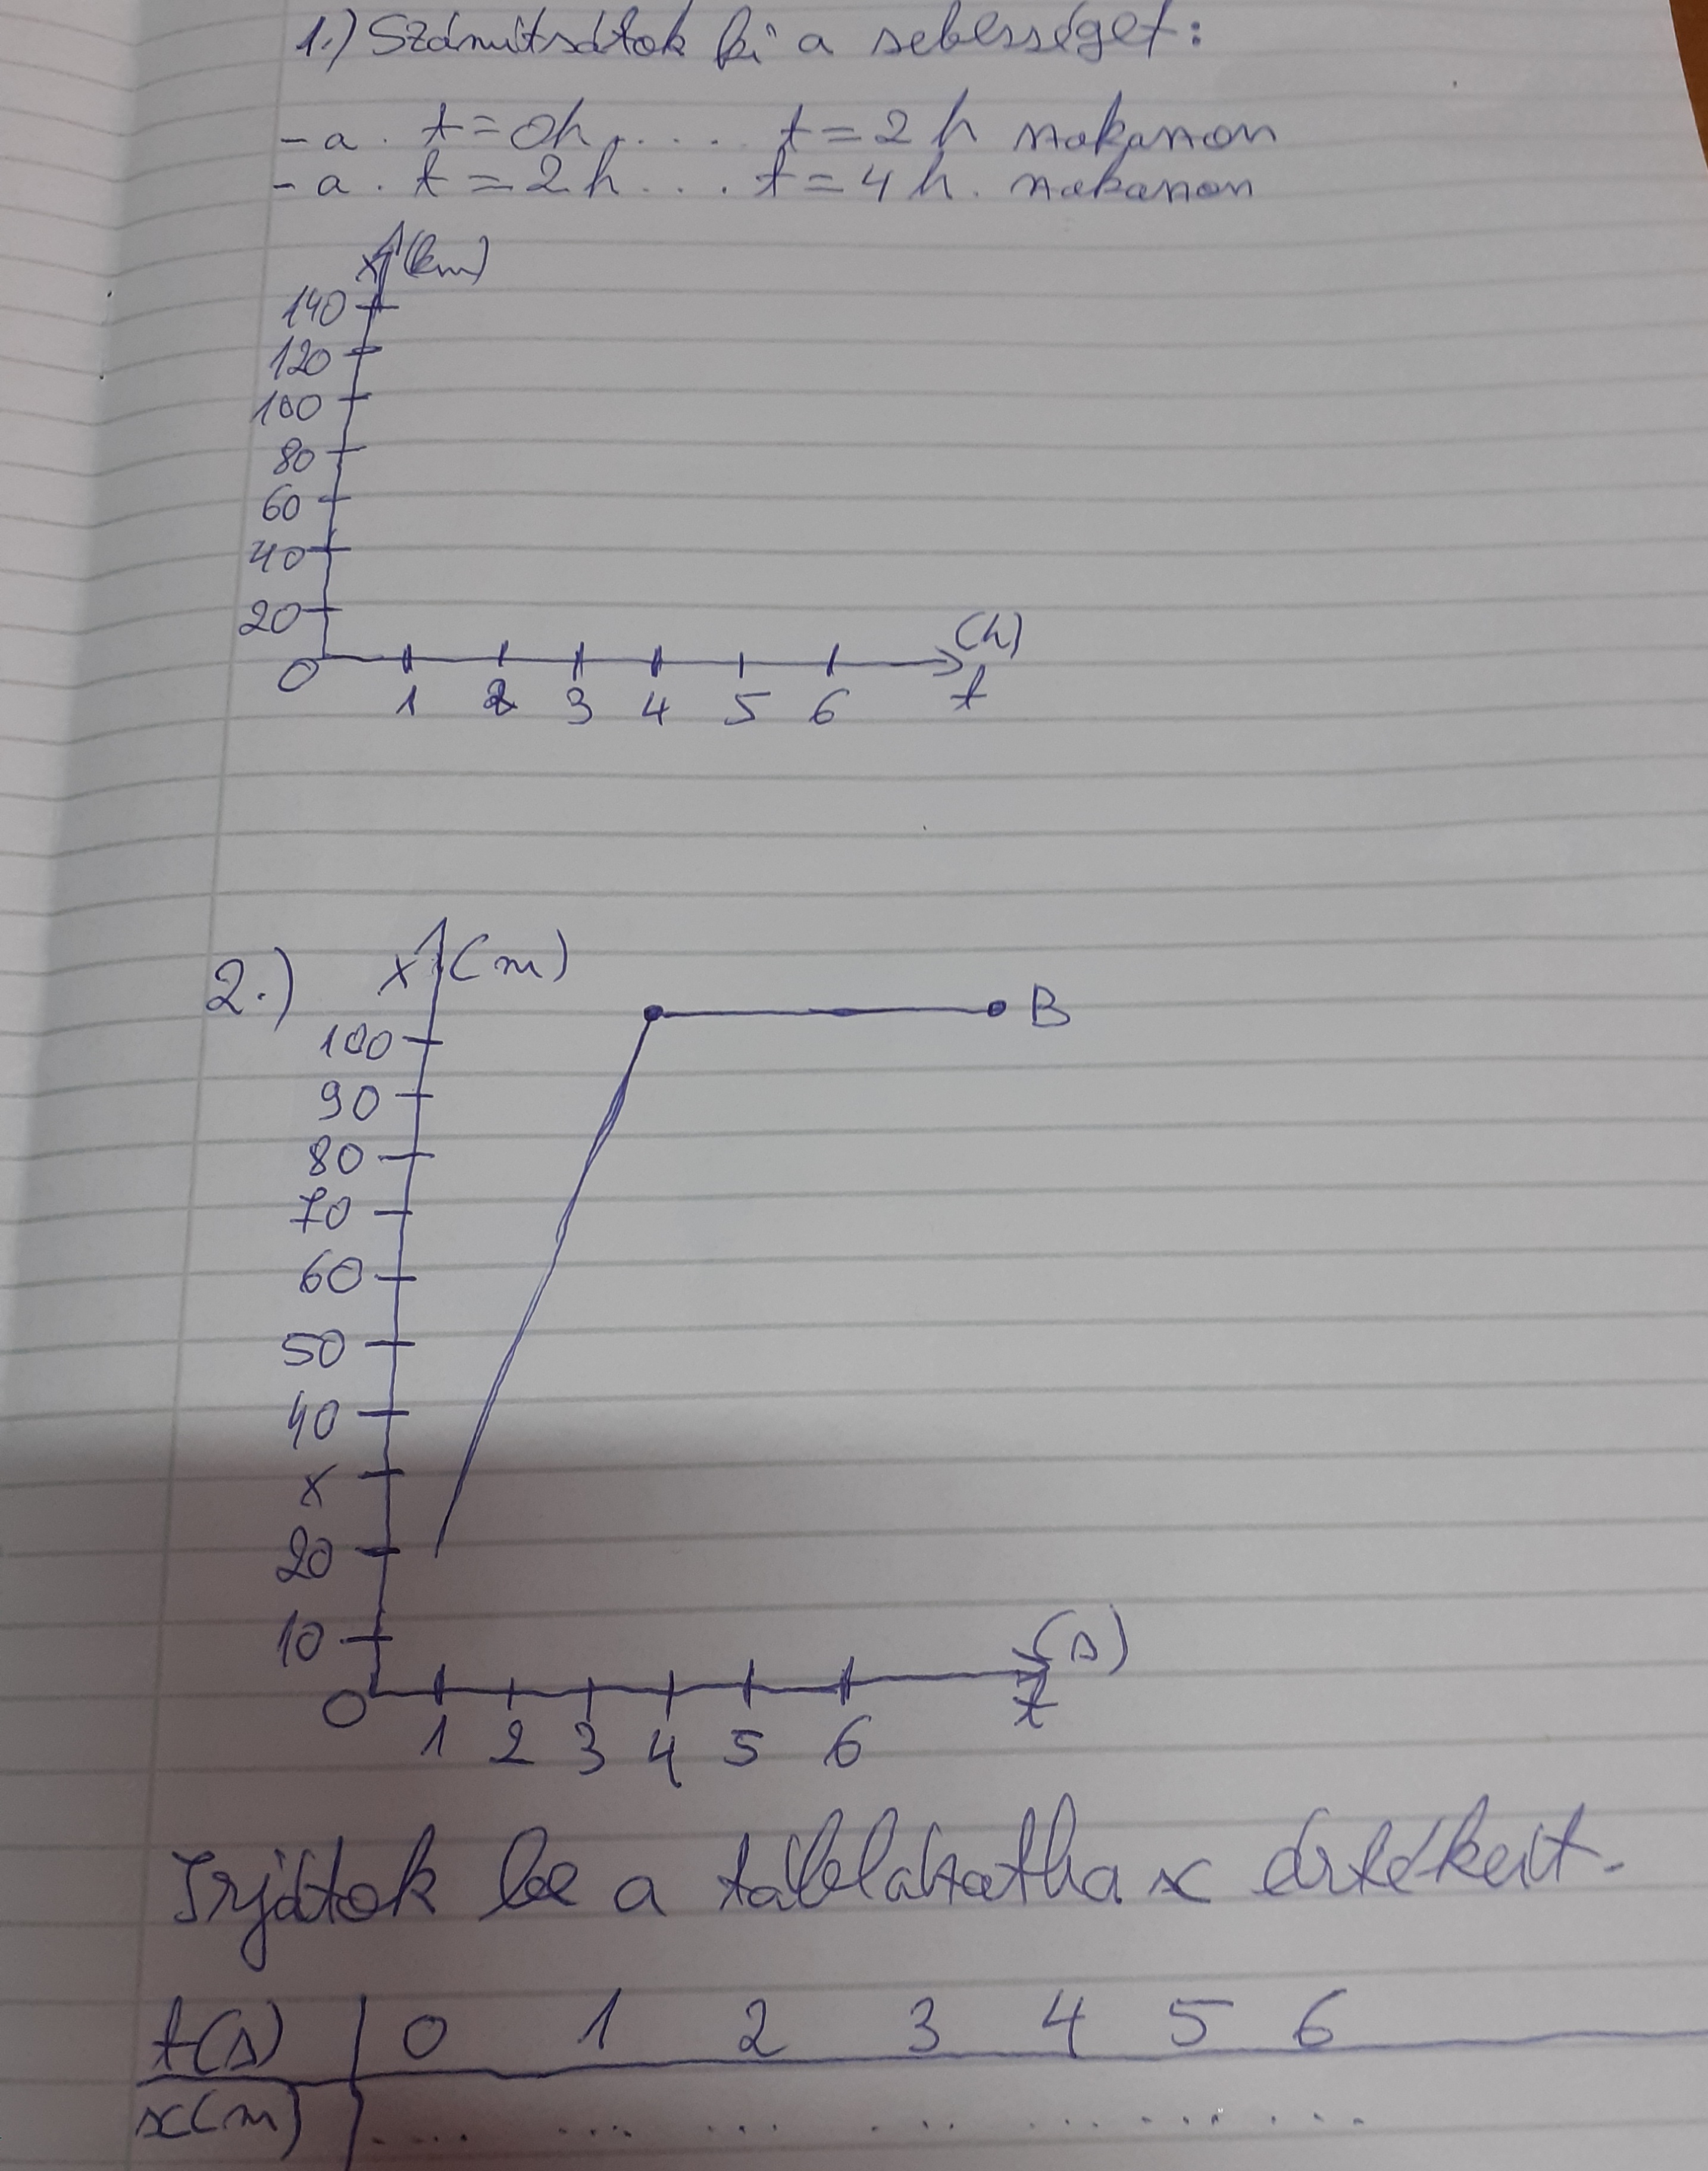 1.) Számítsátok ki a sebességet:
- a. t=0h.... t=2h szakaszon
- a. t=2h... t=4h. szakaszon
x (km)
140
120
100
80
60
40
20
0
1 2 3 4 5 6
(h)
t
2.) x (m)
B
100
90
80
70
60
50
40
x
20
10
0
1 2 3 4 5 6
(s)
t
Irjátok be a táblázatba x értékeit.
t(s) 0 1 2 3 4 5 6
x(m) .... ... ... ... ... ... ...